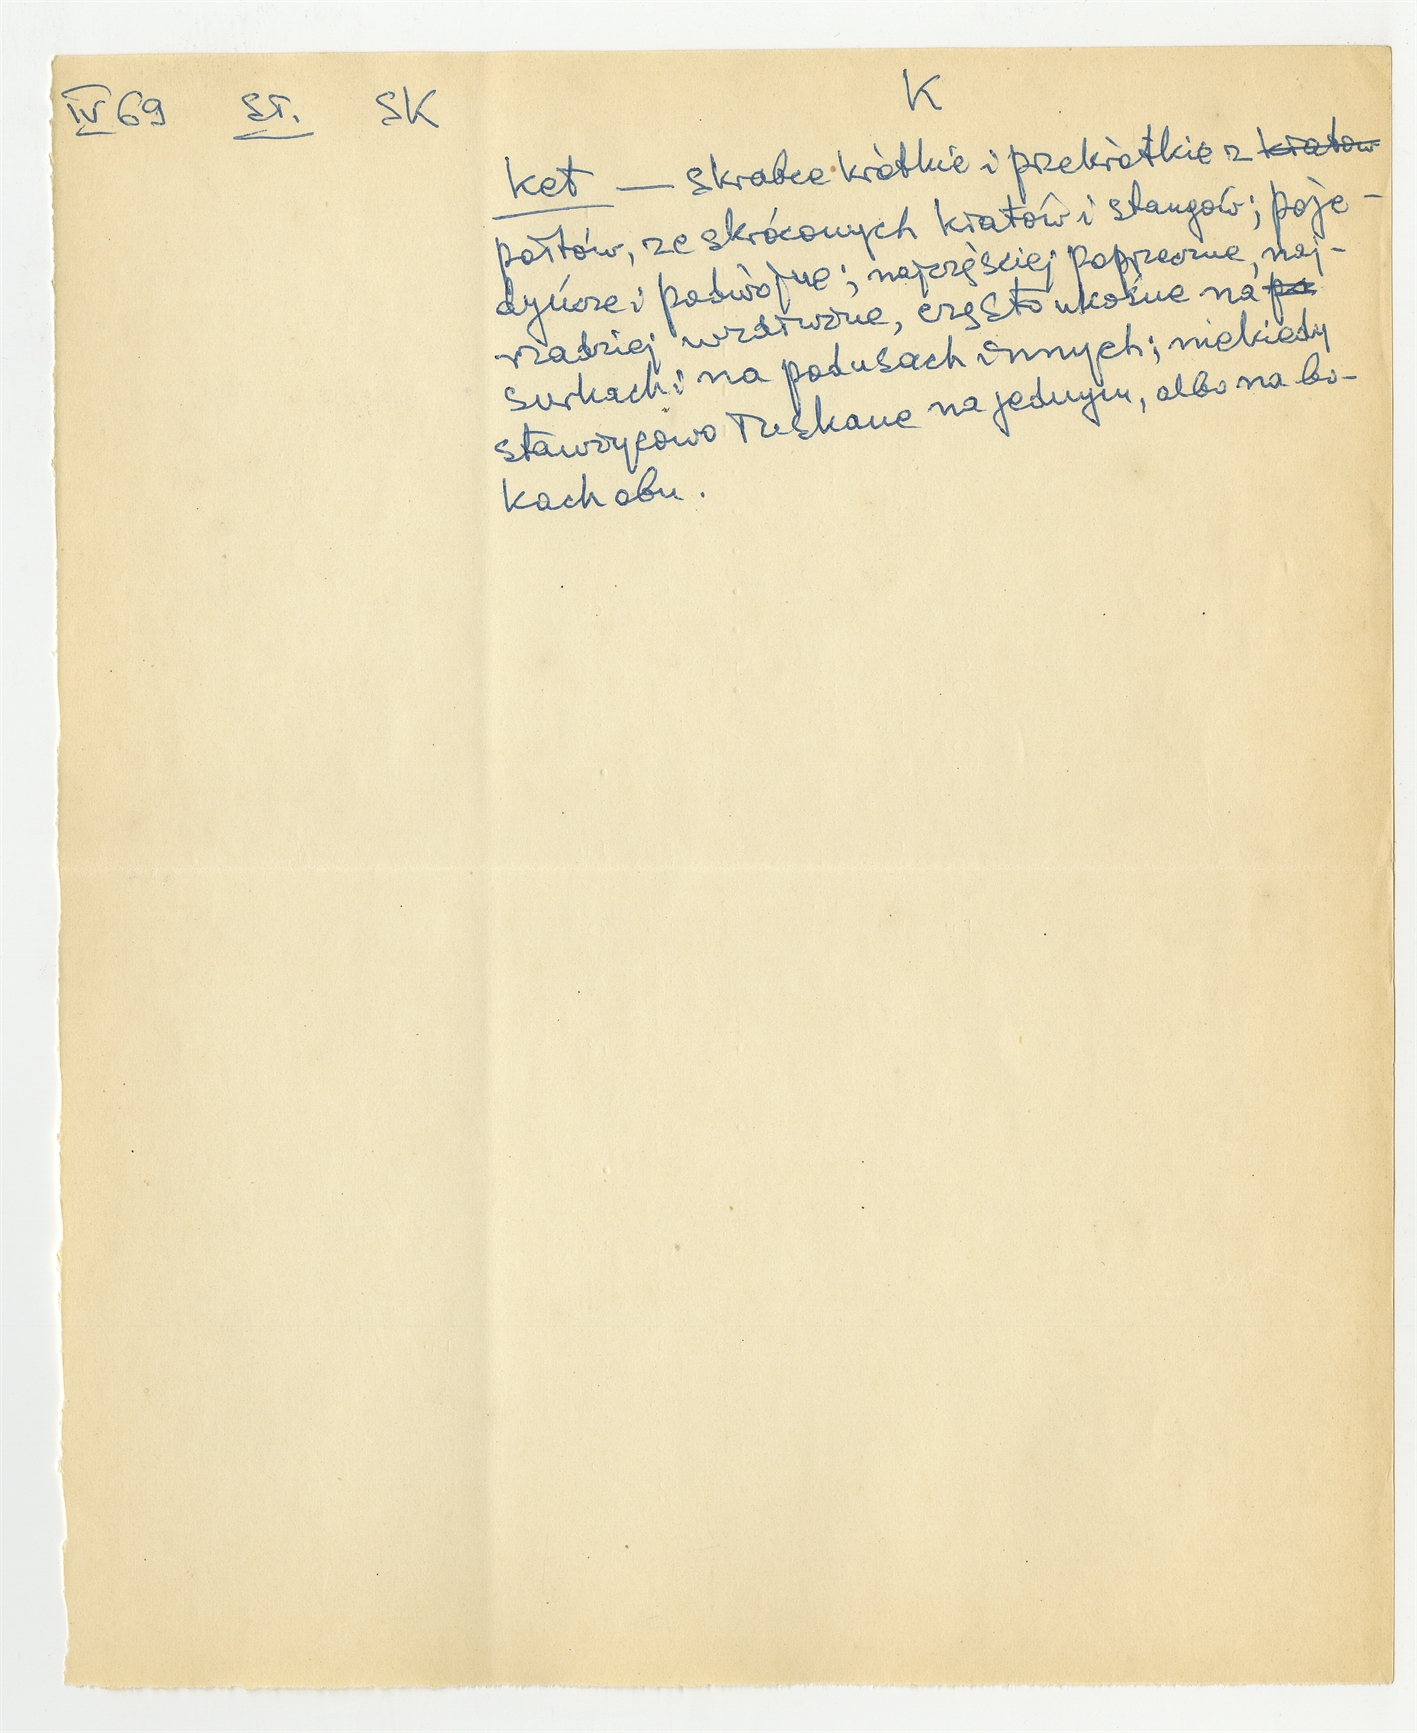 IV 69 ST. SK
K
Ket — skrobce krótkie i przekrótkie z kratow
połtów, ze skróconych kratów i stangów; poje-
dyńcze i podwójne; najczęściej poprzeczne, naj-
rzadziej wzdłużne, często ukośne na po
surkach i na podusach innych; niekiedy
stawzycowo łuskane na jednym, albo na bo-
kach obu.